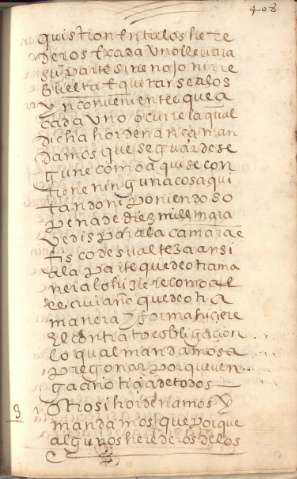 408
quistion entre los here
deros E cada uno lleuara
su parte sin enojo ni re
buelta E quitarse a los
ynconvenientes que a
cada uno ocurre la qual
dicha hordenança man
damos que se guarde se
gun e como aqui se con
tiene ninguna cosa qui
tando ni poniendo so
pena de diez mill mara
vedis para la camara e
fisco de su alteza ansi
a la parte que de otra ma
nera lo hiziere como al
escriuano que de otra
manera y forma hiziere
El contrato e obligacion
lo qual mandamos a
pregonar porque ven
ga a noticia de todos
Otrosi hordenamos y
mandamos que porque
algunos herederos de los